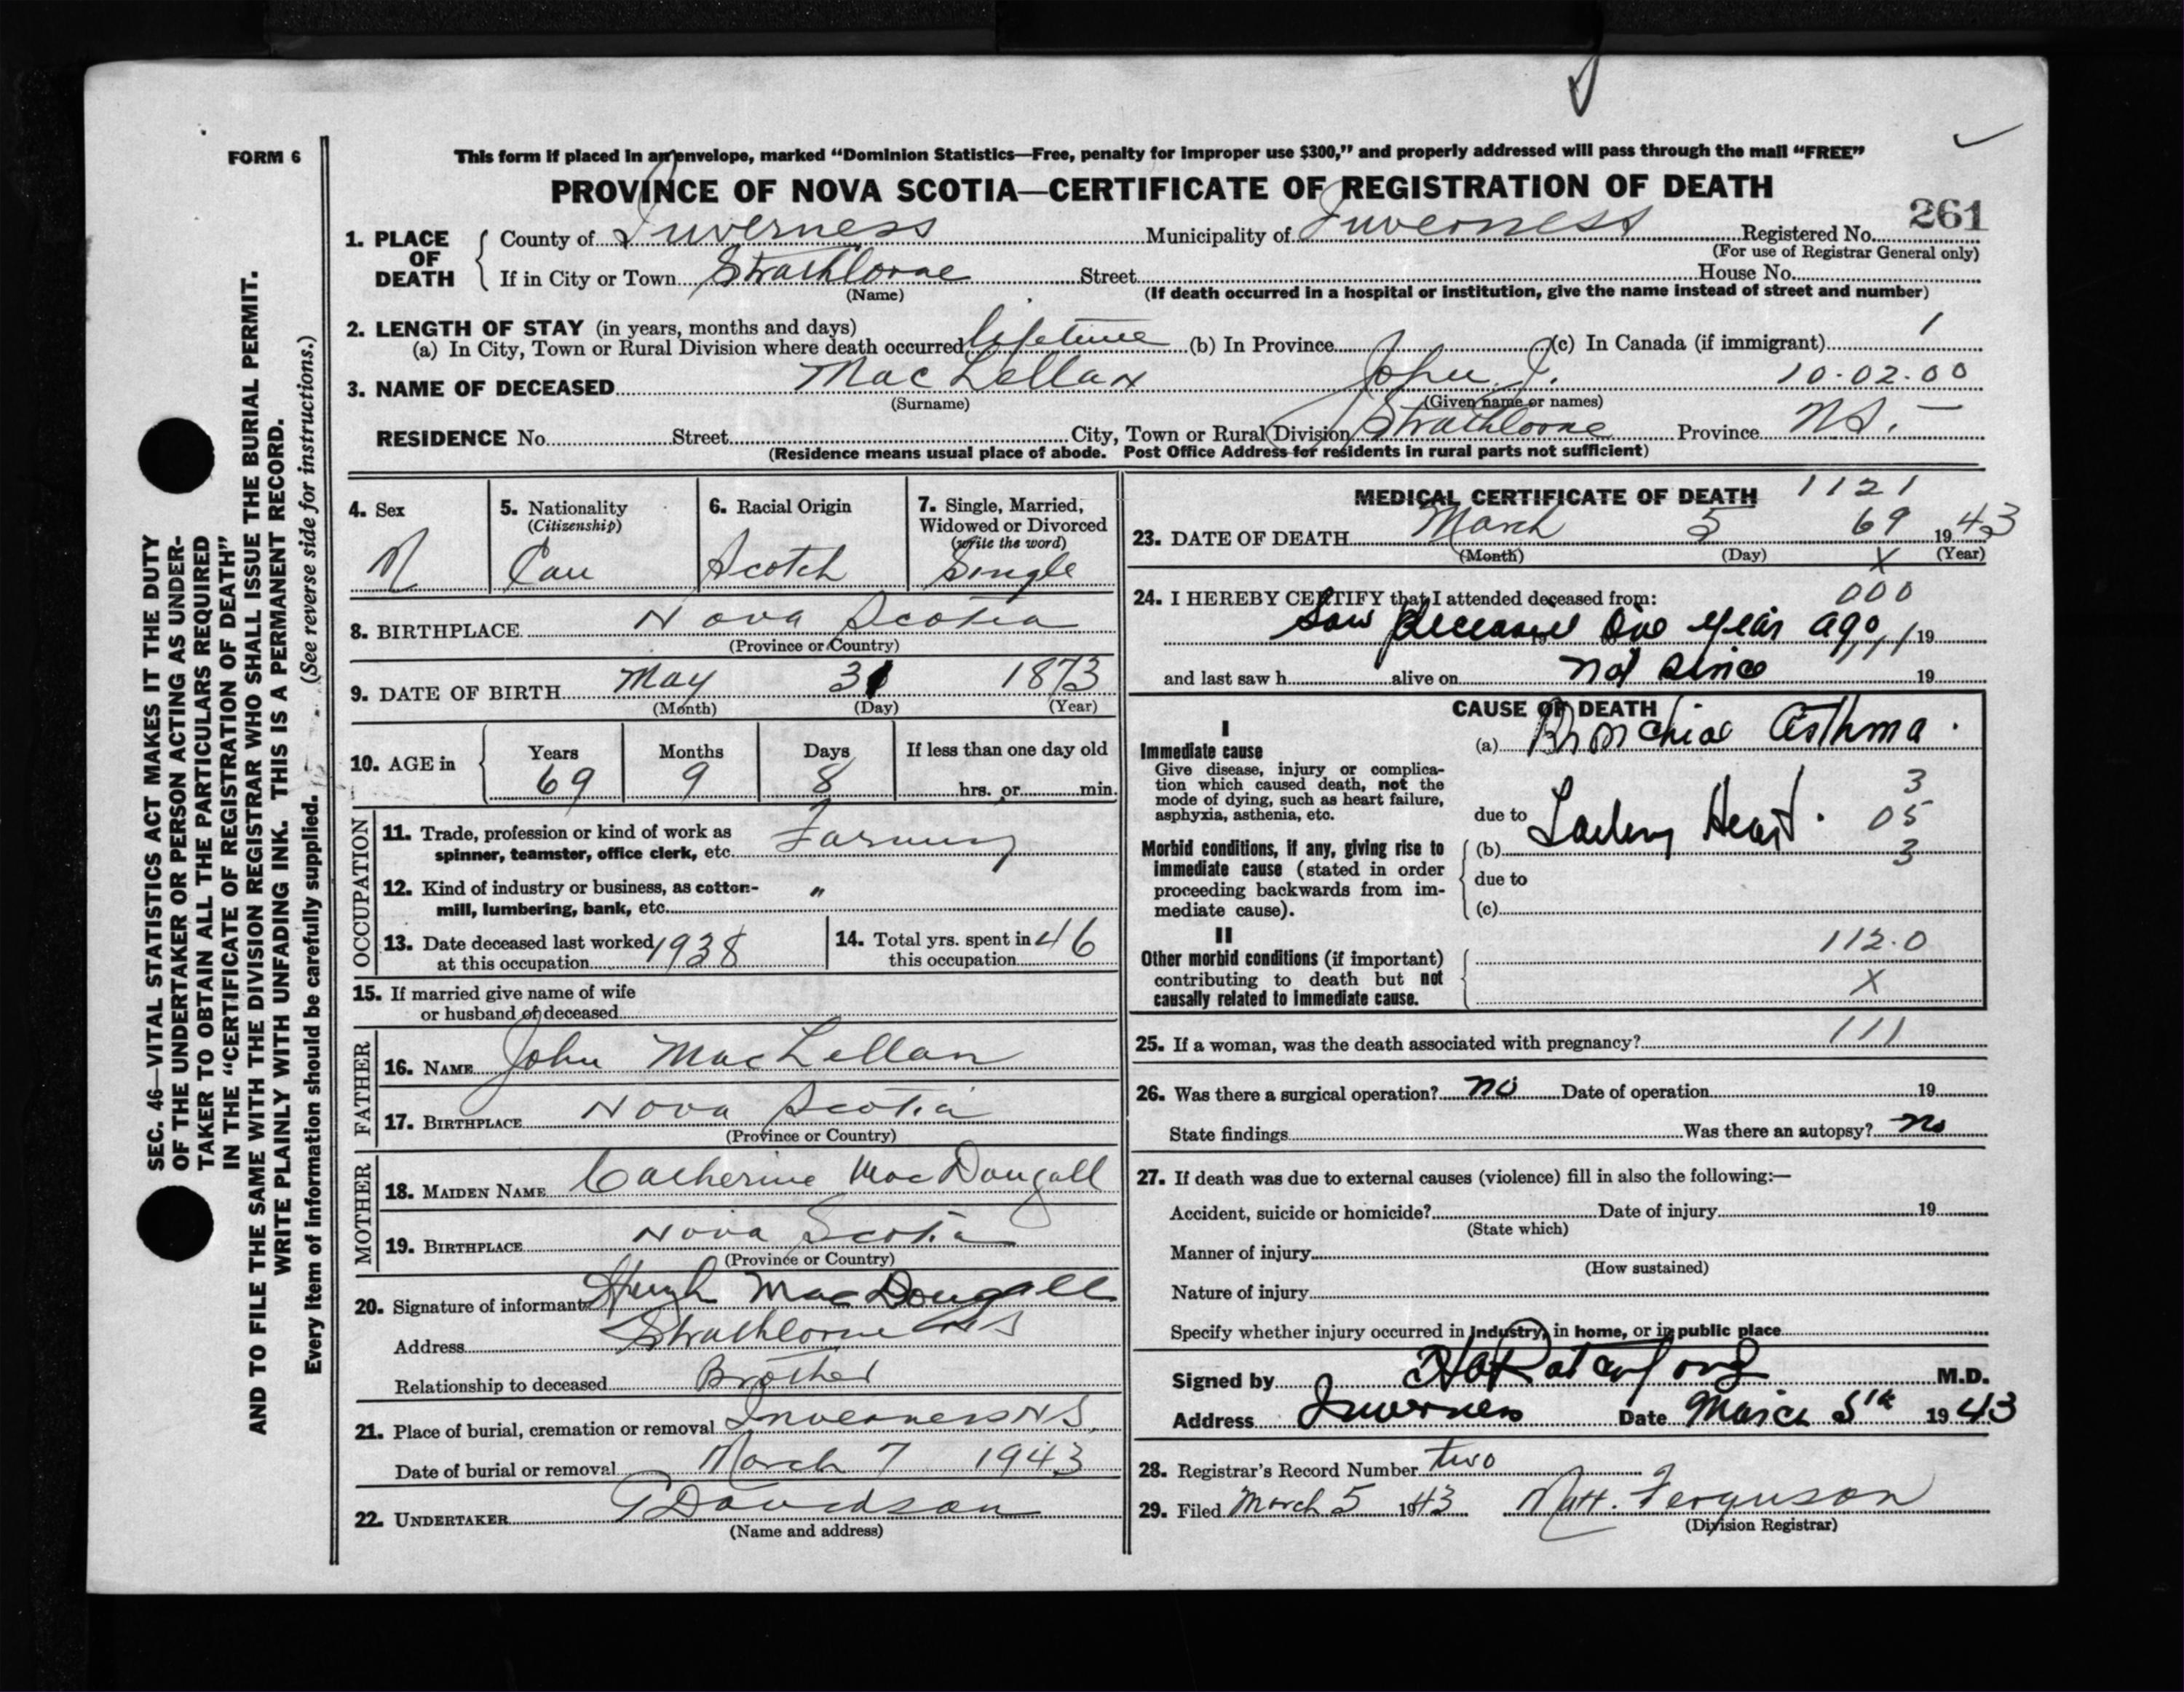 FORM 6
This form if placed in an envelope, marked “Dominion Statistics—Free, penalty for improper use $300,” and properly addressed will pass through the mail “FREE”
PROVINCE OF NOVA SCOTIA—CERTIFICATE OF REGISTRATION OF DEATH
261
1. PLACE OF DEATH County of Inverness Municipality of Inverness Registered No.
(For use of Registrar General only)
If in City or Town Strathlorne Street House No.
(Name) (If death occurred in a hospital or institution, give the name instead of street and number)
2. LENGTH OF STAY (in years, months and days) 1
(a) In City, Town or Rural Division where death occurred lifetime (b) In Province (c) In Canada (if immigrant)
3. NAME OF DECEASED MacLellan John J. 10-02-00
(Surname) (Given name or names)
RESIDENCE No. Street City, Town or Rural Division Strathlorne Province N.S. —
(Residence means usual place of abode. Post Office Address for residents in rural parts not sufficient)
4. Sex 5. Nationality 6. Racial Origin 7. Single, Married,
(Citizenship) Widowed or Divorced
(write the word)
M Can Scotch Single
8. BIRTHPLACE Nova Scotia
(Province or Country)
9. DATE OF BIRTH May 31 1873
(Month) (Day) (Year)
10. AGE in Years Months Days If less than one day old
69 9 8 hrs. or min.
OCCUPATION
11. Trade, profession or kind of work as
spinner, teamster, office clerk, etc. Farming
12. Kind of industry or business, as cotton- "
mill, lumbering, bank, etc.
13. Date deceased last worked 1938 14. Total yrs. spent in 46
at this occupation this occupation
15. If married give name of wife
or husband of deceased
FATHER
16. NAME John MacLellan
17. BIRTHPLACE Nova Scotia
(Province or Country)
MOTHER
18. MAIDEN NAME Catherine MacDougall
19. BIRTHPLACE Nova Scotia
(Province or Country)
20. Signature of informant Hugh MacDougall
Address Strathlorne NS
Relationship to deceased Brother
21. Place of burial, cremation or removal Inverness N S,
Date of burial or removal March 7 1943
22. UNDERTAKER Davidson
(Name and address)
MEDICAL CERTIFICATE OF DEATH 1121
23. DATE OF DEATH March 5 69 1943
(Month) (Day) X (Year)
24. I HEREBY CERTIFY that I attended deceased from: 000
Saw deceased one year ago 19
and last saw h alive on not since 19
CAUSE OF DEATH
I
Immediate cause (a) Bronchial Asthma.
Give disease, injury or complica-
tion which caused death, not the 3
mode of dying, such as heart failure,
asphyxia, asthenia, etc. due to 05
Morbid conditions, if any, giving rise to (b) Heart. 3
immediate cause (stated in order
proceeding backwards from im- due to
mediate cause). (c)
II
Other morbid conditions (if important) 112.0
contributing to death but not
causally related to immediate cause. X
25. If a woman, was the death associated with pregnancy? 111
26. Was there a surgical operation? no Date of operation 19
State findings Was there an autopsy? no
27. If death was due to external causes (violence) fill in also the following:—
Accident, suicide or homicide? Date of injury 19
(State which)
Manner of injury
(How sustained)
Nature of injury
Specify whether injury occurred in industry, in home, or in public place
Signed by M.D.
Address Inverness Date March 5th 1943
28. Registrar's Record Number two
29. Filed March 5 1943 Matt. Ferguson
(Division Registrar)
SEC. 46—VITAL STATISTICS ACT MAKES IT THE DUTY
OF THE UNDERTAKER OR PERSON ACTING AS UNDER-
TAKER TO OBTAIN ALL THE PARTICULARS REQUIRED
IN THE “CERTIFICATE OF REGISTRATION OF DEATH”
AND TO FILE THE SAME WITH THE DIVISION REGISTRAR WHO SHALL ISSUE THE BURIAL PERMIT.
WRITE PLAINLY WITH UNFADING INK. THIS IS A PERMANENT RECORD.
Every item of information should be carefully supplied. (See reverse side for instructions.)